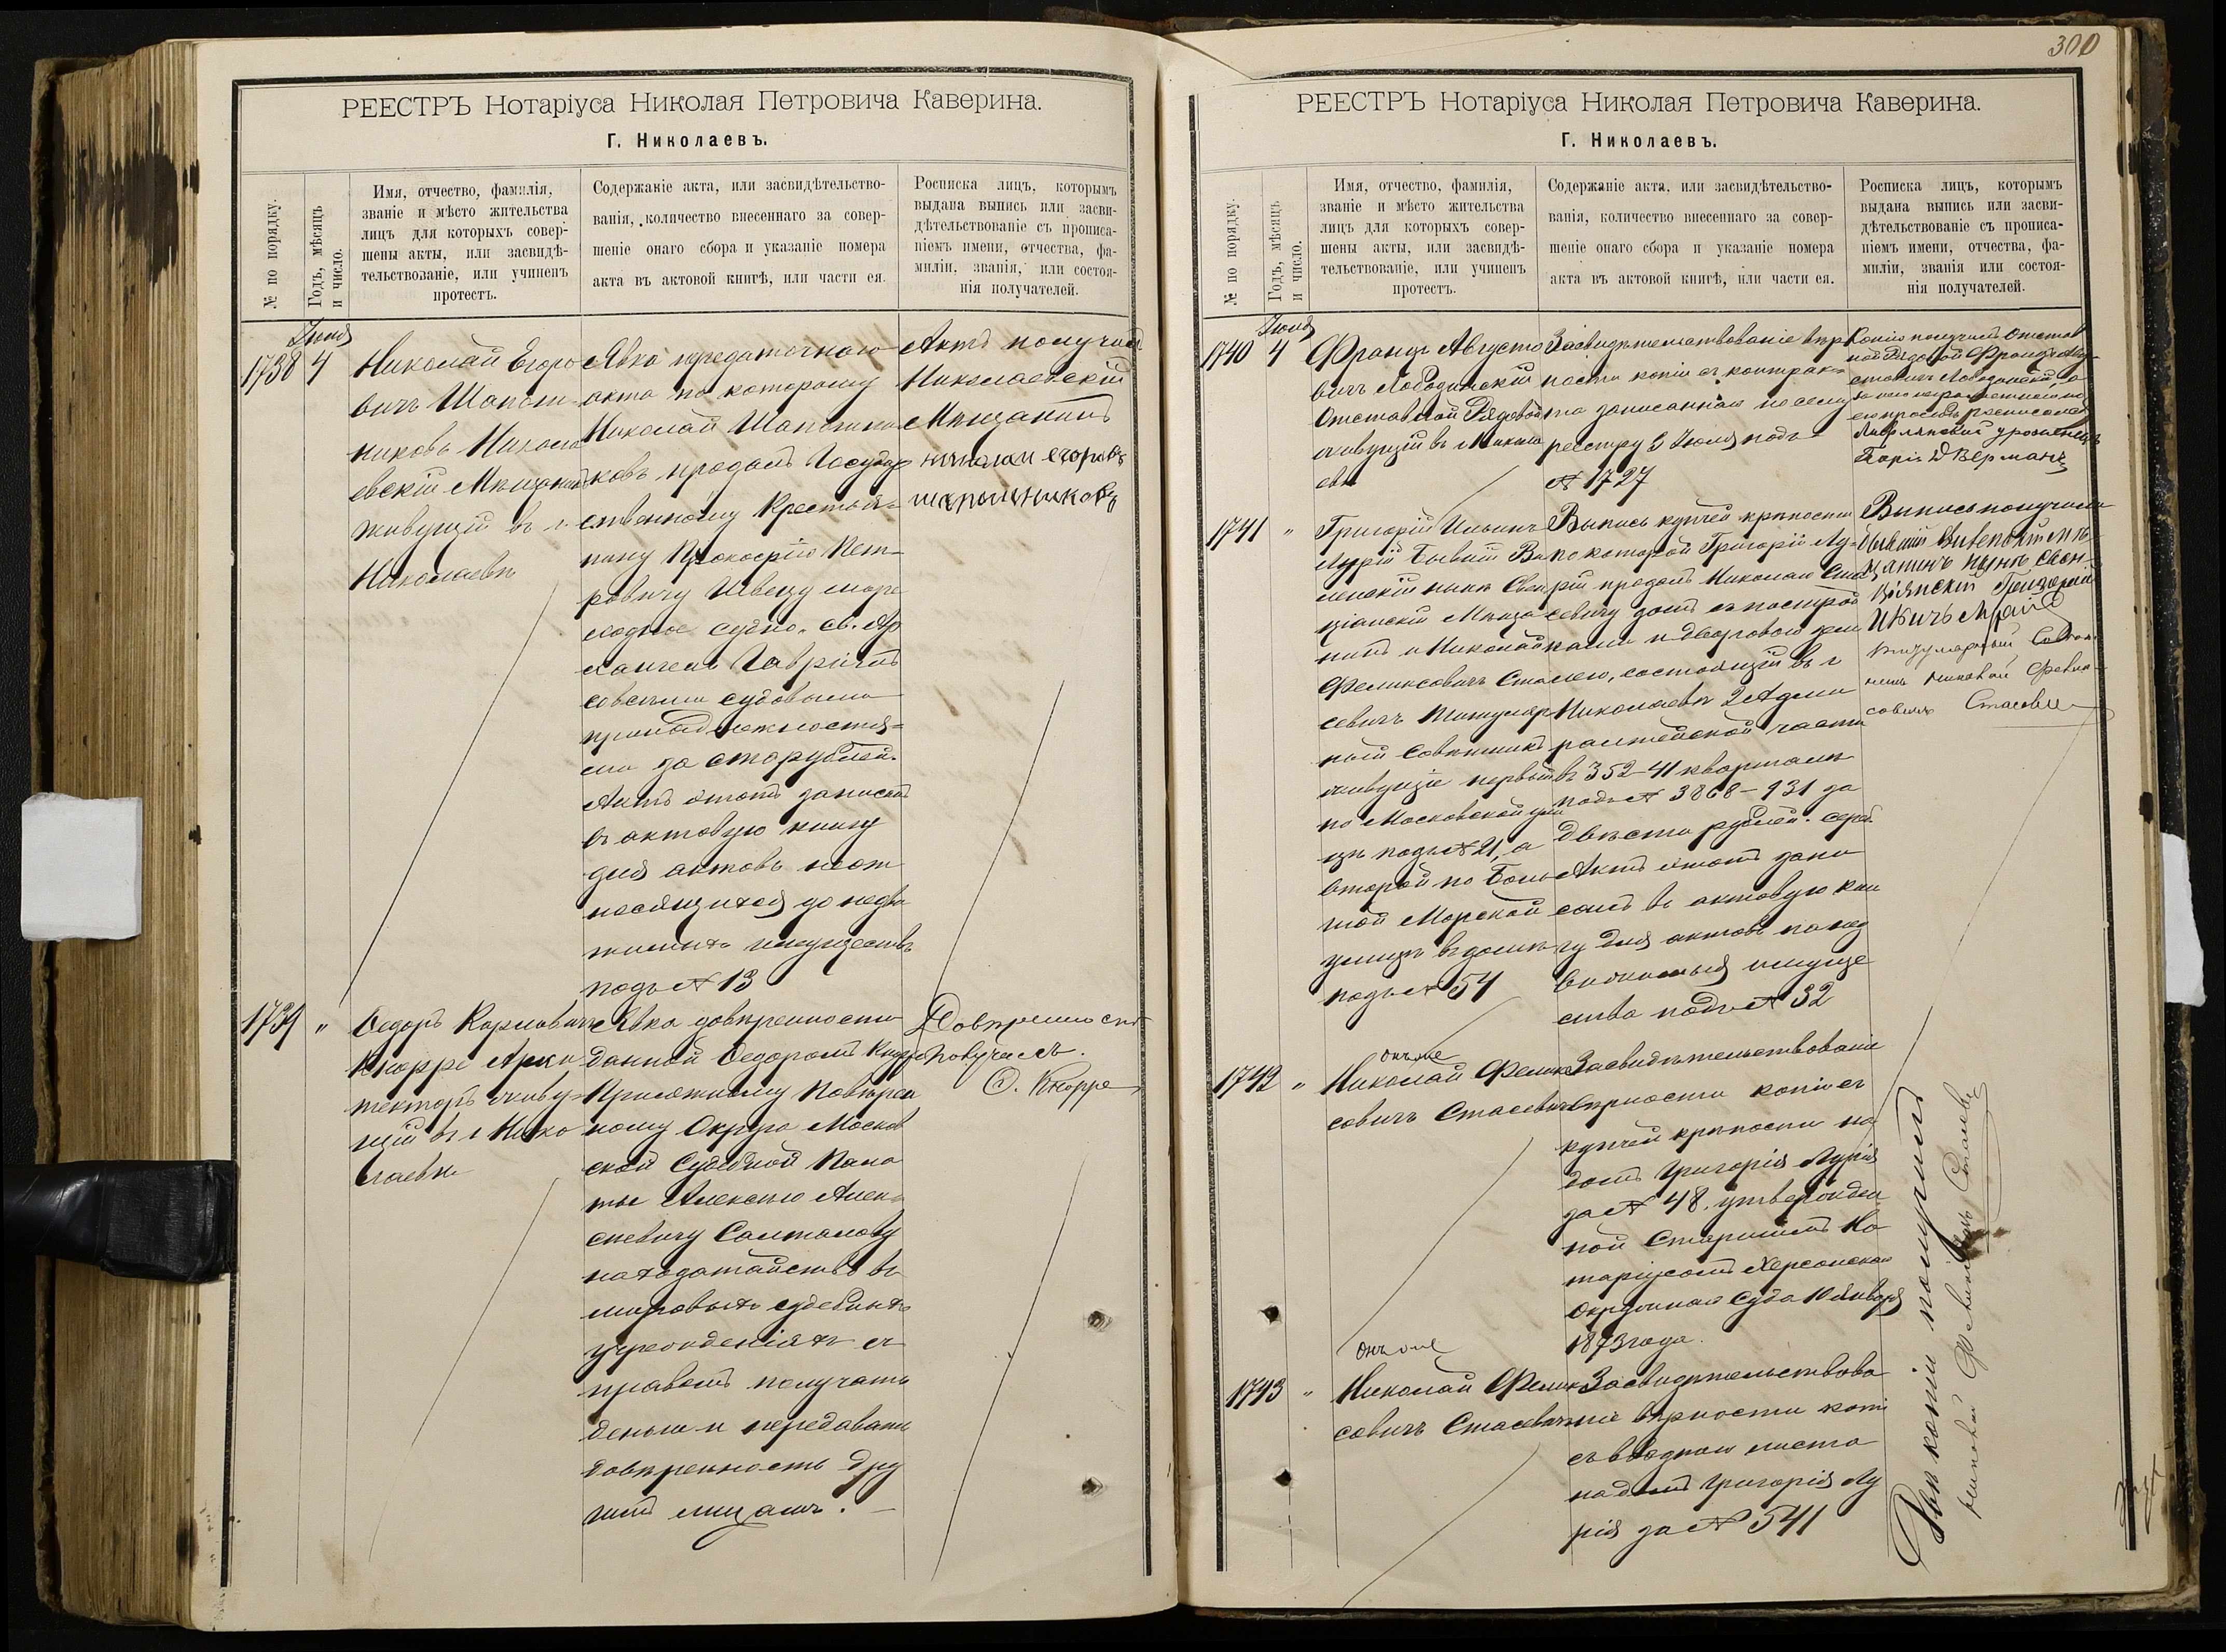 РЕЕСТРЪ Нотаріуса Николая Петровича Каверина.
Г. Николаевъ.
№ по порядку.
Годъ, мѣсяцъ
и число.
Имя, отчество, фамилія,
званіе и мѣсто жительства
лицъ для которыхъ совер-
шены акты, или засвидѣ-
тельствованіе, или учиненъ
протестъ.
Содержаніе акта, или засвидѣтельство-
ванія, количество внесеннаго за совер-
шеніе онаго сбора и указаніе номера
акта въ актовой книгѣ, или части ея.
Росписка лицъ, которымъ
выдана выпись или засви-
дѣтельствованіе съ прописа-
ніемъ имени, отчества, фа-
миліи, званія, или состоя-
нія получателей.
Іюля
1738 4
Николай Егоро
вичъ Шапош-
никовъ Никола
евскій Мѣщанинъ
живущій въ г.
Николаевѣ
Явка продаточнаго
акта по которому
Николай Шапошни
ковъ продалъ Государ
ственному Крестья-
нину Прокофію Пет-
ровичу Швецу море
ходное судно „Св. Ар
хангелъ Гавріилъ
со всѣми судовыми
принадлежностя-
ми за сто рублей.
Актъ этотъ записанъ
въ актовую книгу
для актовъ неот
носящихся до недви
жимыхъ имуществъ
подъ № 13
Актъ получилъ
Николаевскій
Мѣщанинъ
николаи егоровъ
шапошниковъ
1739 "
Ѳедоръ Карловичъ
Кнорре Архи
текторъ живу-
щій въ г. Нико
лаевѣ
Явка довѣренности
данной Ѳедоромъ Кнорре
Присяжному Повѣрен
ному Округа Москов
ской Судебной Пала
ты Алексѣю Алек-
сѣевичу Салтанову
на ходатайство въ
мировыхъ судебныхъ
учрежденіяхъ съ
правомъ получать
деньги и передавать
довѣренность дру
гимъ лицамъ. —
Довѣренность
получилъ.
Ѳ. Кнорре
300
РЕЕСТРЪ Нотаріуса Николая Петровича Каверина.
Г. Николаевъ.
№ по порядку.
Годъ, мѣсяцъ
и число.
Имя, отчество, фамилія,
званіе и мѣсто жительства
лицъ для которыхъ совер-
шены акты, или засвидѣ-
тельствованіе, или учиненъ
протестъ.
Содержаніе акта, или засвидѣтельство-
ванія, количество внесеннаго за совер-
шеніе онаго сбора и указаніе номера
акта въ актовой книгѣ, или части ея.
Росписка лицъ, которымъ
выдана выпись или засви-
дѣтельствованіе съ прописа-
ніемъ имени, отчества, фа-
миліи, званія или состоя-
нія получателей.
Іюля
1740 4
Францъ Августо
вичъ Лободинскій
Отставной Рядовой
живущій въ Никола
евѣ
Засвидѣтельствованіе вѣр
ности копіи съ контрак-
та записаннаго по сему
реестру 3 Іюля подъ
№ 1727
Копію получилъ Отстав
ной Рядовой Францъ Авгу-
стовичъ Лободинскій, а
за него неграмотнаго по
его просьбѣ росписался
уроженецъ
1741 "
Григорій Ильичъ
Лурій бывшій Ви
ленскій нынѣ Свен
ціанскій Мѣща
нинъ и Николай
Феликсовичъ Ста
севичъ Титуляр
ный Совѣтникъ
живущіе первый
по Московской ули
цѣ подъ № 21, а
второй по Боль
шой Морской
улицѣ въ домѣ
подъ № 54
Выпись купчей крѣпости
по которой Григорій Лу-
рій продалъ Николаю Ста
севичу домъ съ построй
ками и дворовою зем
лею, состоящій въ г.
Николаевѣ 2 Адми
ралтейской части
въ 352-41 кварталѣ
подъ № 3868-931 за
двѣсти рублей сереб.
Актъ этотъ запи
санъ въ актовую кни
гу для актовъ по нед
вижимыя имуще
ства подъ № 32
Выпись получили
бывшій Виленскій мѣ-
щанинъ нынѣ Свен-
ціянскій Григорій
Ильичъ Лурій
титулярный Совѣт-
никъ Николай Фелик-
совичъ Стасевич
1742 "
онъ же
Николай Фелик
совичъ Стасевичъ
Засвидѣтельствованіе
вѣрности копіи съ
купчей крѣпости на
домъ Григорія Лурія
за № 48, утвержден
ной Старшимъ Но
таріусомъ Херсонскаго
Окружнаго Суда 10 Января
1873 года.
1743 "
онъ же
Николай Фелик
совичъ Стасевичъ
Засвидѣтельствова
ніе вѣрности копіи
съ вводнаго листа
на домъ Григорія Лу
рія за № 541
Двѣ копіи получилъ